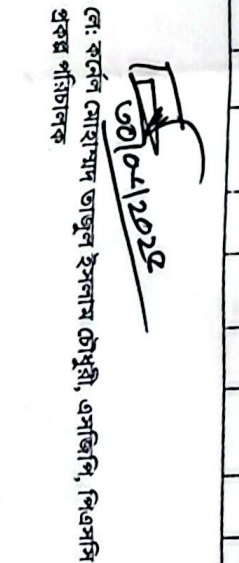 ৩০/০৬/২০২৫
লে: কর্নেল মোহাম্মদ তাজুল ইসলাম চৌধুরী, এসজিপি, পিএসসি
প্রকল্প পরিচালক